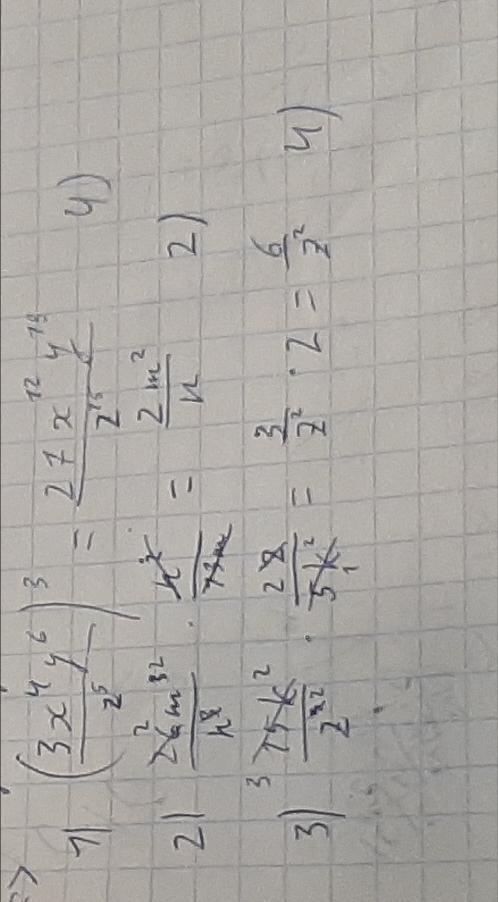 1) (3x⁴y⁶/z⁵)³ = 27x¹²y¹⁸/z¹⁵ 4)
2) 26m³/n⁸ · n⁷/13m = 2m²/n 2)
3) 15k²/z² · 2/5k² = 3/z² · 2 = 6/z² 4)